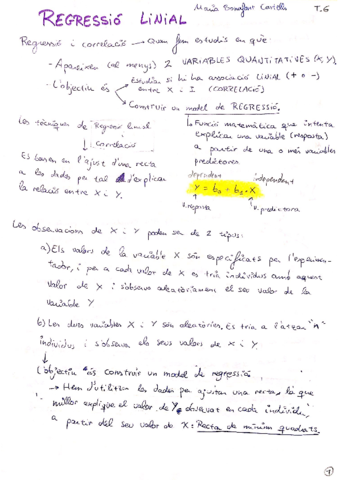 REGRESSIÓ LINIAL
T.6
Regressió i correlació → Quan fem estudis en què:
- Apareixen (al menys) 2 VARIABLES QUANTITATIVES (X, Y)
- L'objectiu és → Estudiar si hi ha associació LINIAL (+ o -)
entre X i Y (CORRELACIÓ)
→ Construir un model de REGRESSIÓ.
↳ Funció matemàtica que intenta
explicar una variable (resposta)
a partir de una o més variables
predictores
Les tècniques de Regressió lineal
i correlació
Es basen en l'ajust d'una recta
a les dades per tal d'explicar
la relació entre X i Y.
dependent independent
Y = b₀ + b₁ · X
v. resposta v. predictora
Les observacions de X i Y poden ser de 2 tipus:
a) Els valors de la variable X són especificats per l'experimen-
tador, i per a cada valor de X es tria individus amb aquest
valor de X i s'observa aleatòriament el seu valor de la
variable Y
b) Les dues variables X i Y són aleatòries. Es tria a l'atzar "n"
individus i s'observa els seus valors de X i Y
L'objectiu és construir un model de regressió
→ Hem d'utilitzar les dades per ajustar una recta, la que
millor expliqui el valor de Y observat en cada individu,
a partir del seu valor de X: Recta de mínims quadrats.
1